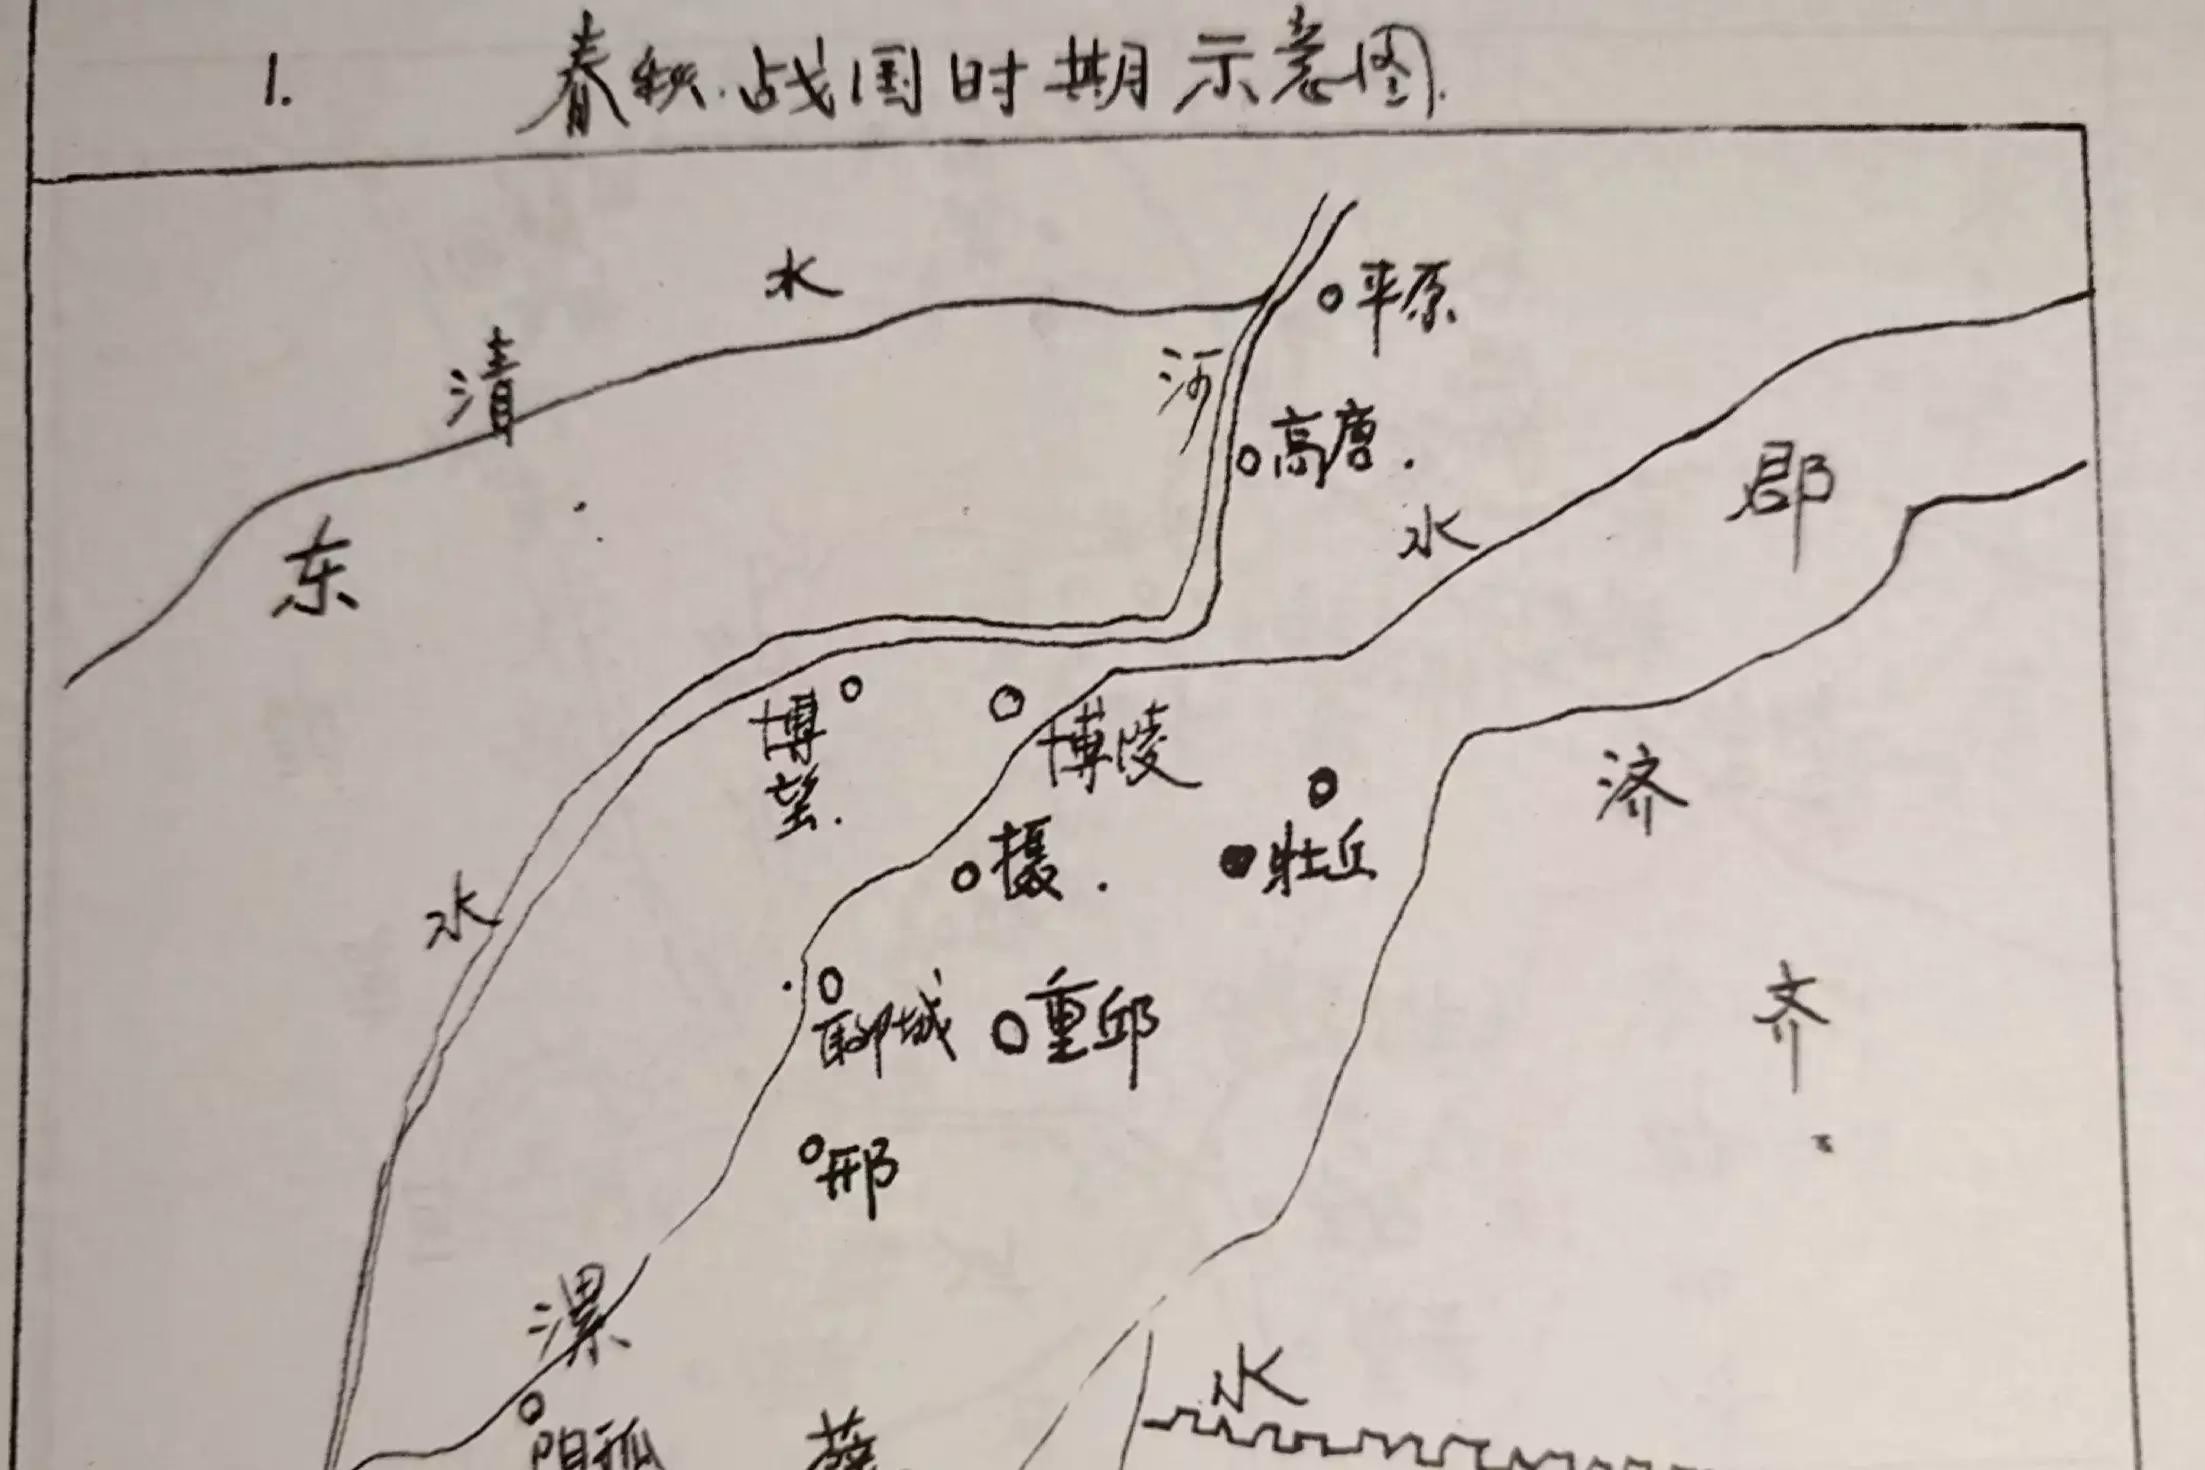 1. 春秋.战国时期示意图.
水
平原
清
河
高唐.
郡
水
东
博望.
博陵
济
摄.
壮丘
水
聊城
重邱
齐
邢
漯
水
阳孤